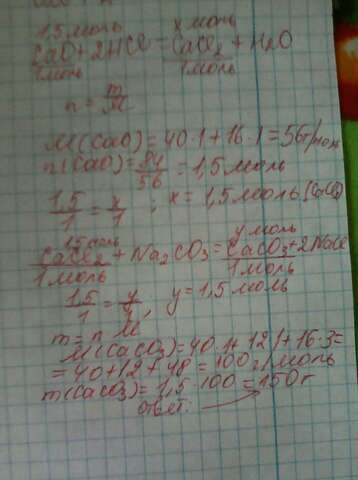 1,5 моль x моль
CaO + 2HCl = CaCl2 + H2O
1моль 1моль
n = m/M
M(CaO) = 40·1 + 16·1 = 56г/моль
n(CaO) = 84/56 = 1,5моль
1,5/1 = x/1 ; x = 1,5моль (CaCl2)
1,5 моль y моль
CaCl2 + Na2CO3 = CaCO3 + 2NaCl
1моль 1моль
1,5/1 = y/1, y = 1,5моль
m = n·M
M(CaCO3) = 40·1 + 12·1 + 16·3 =
= 40 + 12 + 48 = 100г/моль
m(CaCO3) = 1,5·100 = 150г
ответ: